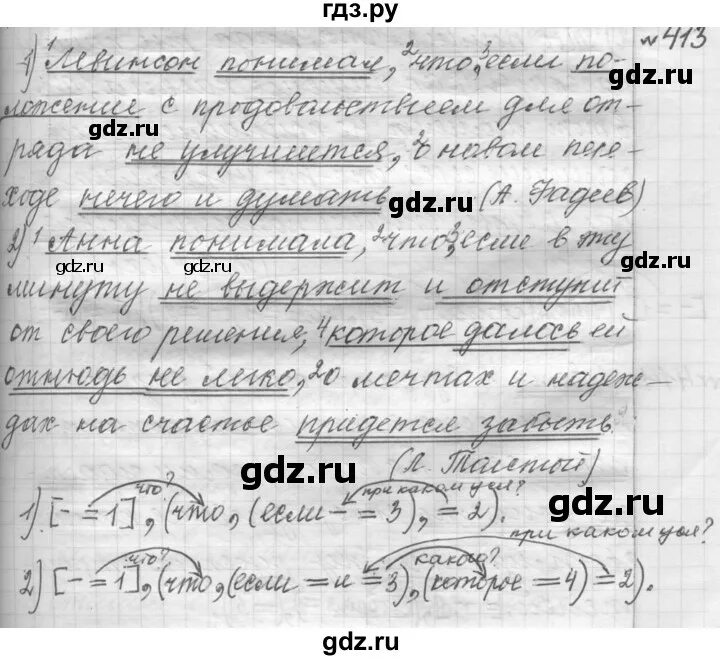 гдз.ру
№413
1) ¹Левинсон понимал, ²что,³если по-
ложение с продовольствием для от-
gdz.ru gdz.ru
ряда не улучшится, ²о новом пере-
ходе нечего и думать. (А. Фадеев)
gdz.ru
2) ¹Анна понимала, ²что,³если в эту
gdz.ru gdz.ru gdz.ru
минуту не выдержит и отступит
от своего решения, ⁴которое далось ей
gdz.ru
отнюдь не легко, ²о мечтах и надеж-
дах на счастье придется забыть.
gdz.ru
(Л. Толстой)
gdz.ru
что? при каком усл?
1). [- = 1], (что, (если - = 3), = 2).
при каком усл?
что? какого?
2) [- = 1], (что, (если = и = 3), (которое = 4) = 2).
gdz.ru gdz.ru
гдз.ру